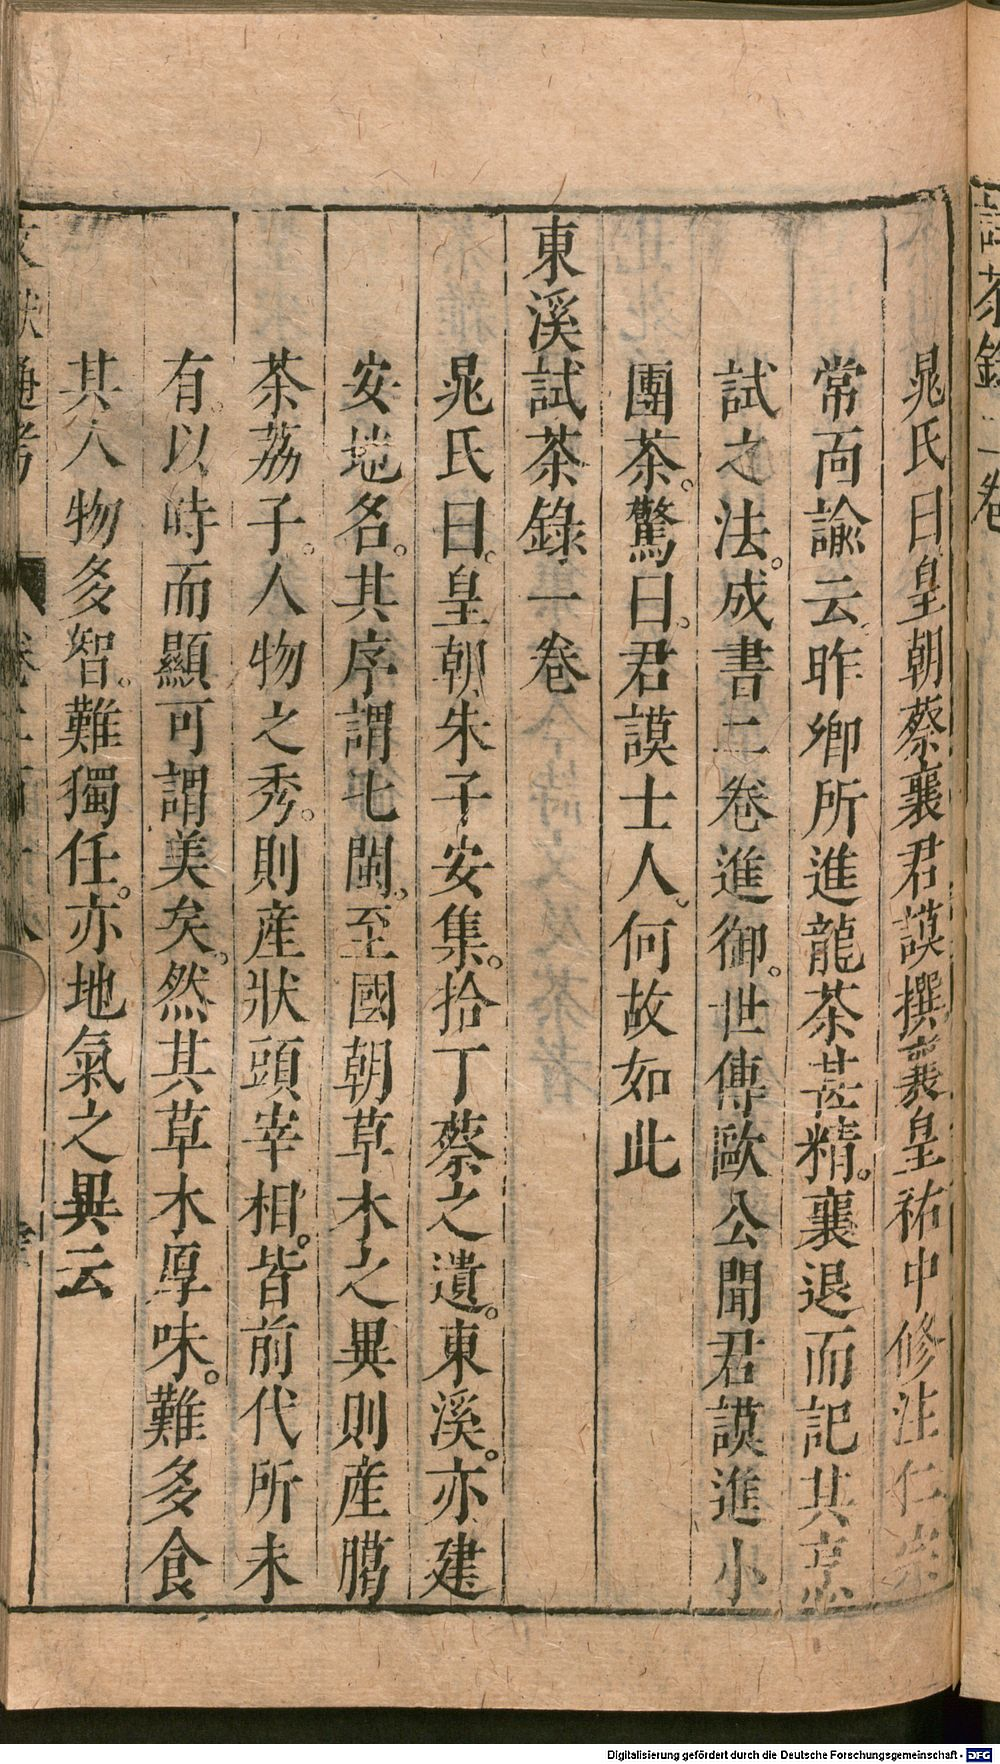 試茶錄二卷
晁氏曰皇朝蔡襄君謨撰義皇祐中修注仁宗
常面諭云昨卿所進龍茶甚精。襄退而記其烹
試之法。成書二卷進御。世傳歐公聞君謨進小
團茶。驚曰。君謨士人。何故如此
東溪試茶錄一卷
晁氏曰。皇朝朱子安集。拾丁蔡之遺。東溪。亦建
安地名。其序謂七閩。至國朝草木之異則產臈
茶荔子。人物之秀。則產狀頭宰相。皆前代所未
有。以時而顯可謂美矣。然其草木厚味。難多食
其人物多智。難獨任。亦地氣之異云
文獻通考
Digitalisierung gefördert durch die Deutsche Forschungsgemeinschaft - DFG